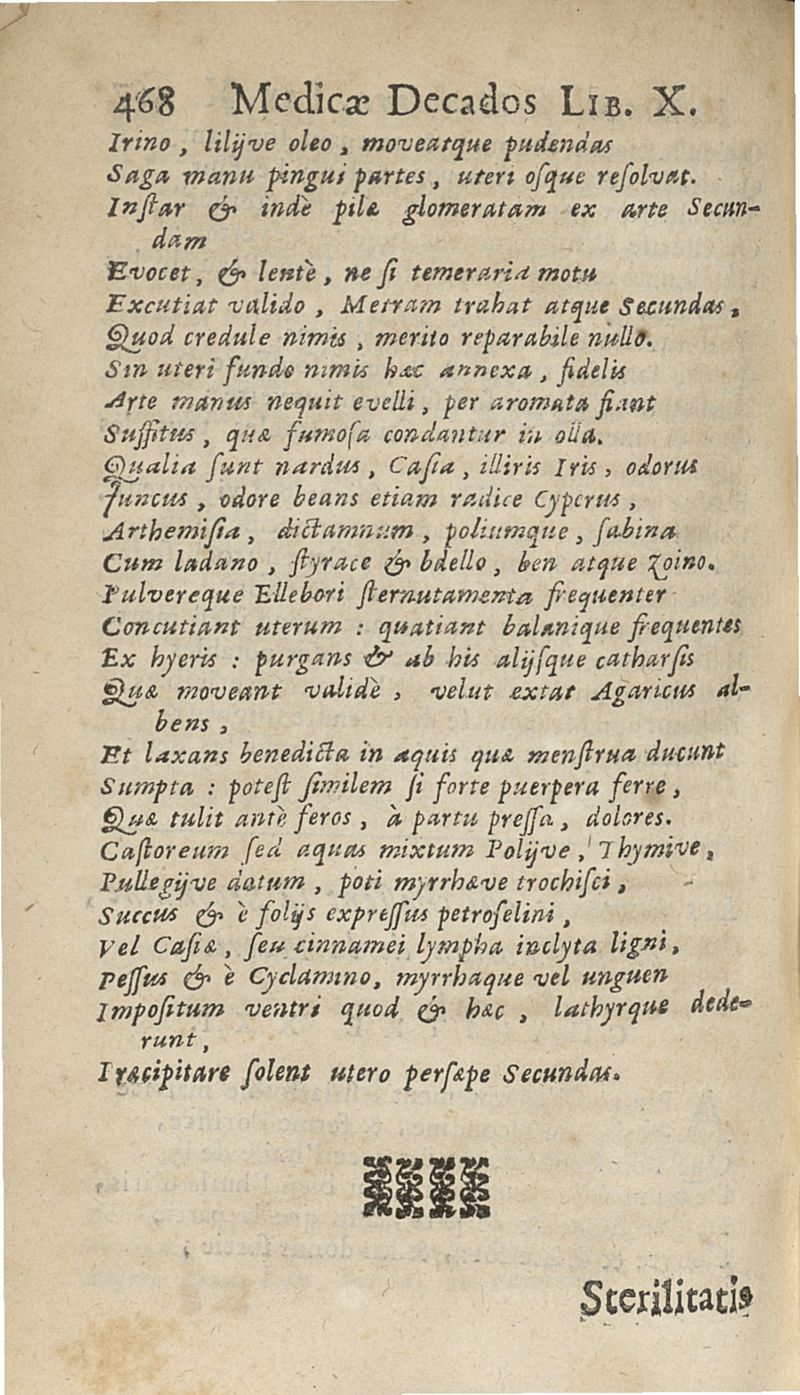 468 Medicæ Decados LIB. X.
Irino, lilijve oleo, moveatque pudendas
Saga manu pingui partes, uteri oſque reſolvat.
Inſtar & indè pilæ glomeratam ex arte Secun-
dam
Evocet, & lentè, ne ſi temeraria motu
Excutiat valido, Metram trahat atque Secundas,
Quod credule nimis, merito reparabile nullo.
Sin uteri fundo nimis hæc annexa, fidelis
Arte manus nequit evelli, per aromata fiant
Suffitus, quæ fumoſa condantur in olla.
Qualia ſunt nardus, Caſia, illiris Iris, odorus
Juncus, odore beans etiam radice Cyperus,
Arthemiſia, dictamnum, poliumque, ſabina
Cum ladano, ſtyrace & bdello, ben atque Zoino.
Pulvereque Ellebori ſternutamenta frequenter
Concutiant uterum : quatiant balanique frequentes
Ex hyeris : purgans & ab his alijſque catharſis
Quæ moveant validè, velut extat Agaricus al-
bens,
Et laxans benedicta in aquis quæ menſtrua ducunt
Sumpta : poteſt ſimilem ſi forte puerpera ferre,
Quæ tulit antè feros, à partu preſſa, dolores.
Caſtoreum ſed aquas mixtum Polijve, Thymive,
Pullegijve datum, poti myrrhæve trochiſci,
Succus & è folijs expreſſus petroſelini,
Vel Caſiæ, ſeu cinnamei lympha inclyta ligni,
Peſſus & è Cyclamino, myrrhaque vel unguen
Impoſitum ventri quod & hæc, lathyrque dede-
runt,
Præcipitare ſolent utero perſæpe Secundas.
Sterilitatis